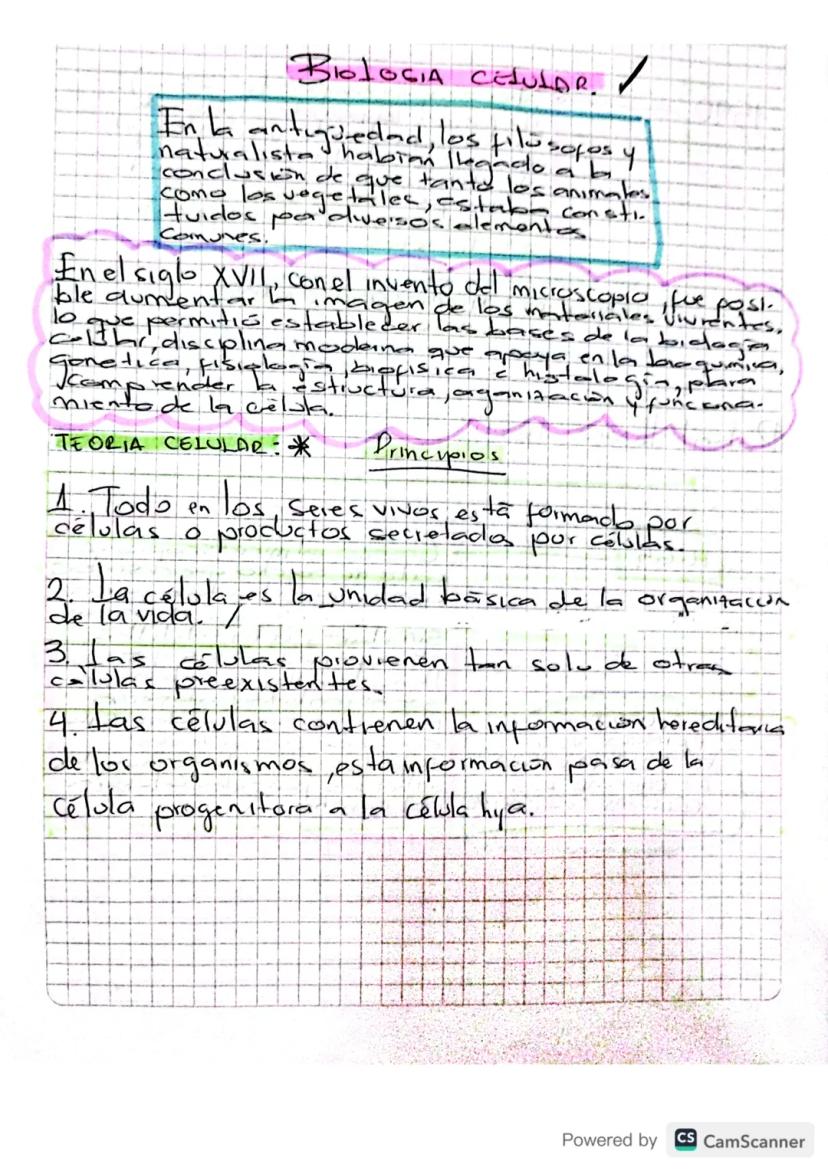 BIOLOGIA CELULAR. ✓
En la antigüedad, los filósofos y
naturalista habían llegado a la
conclusión de que tanto los animales
como los vegetales, estaban consti-
tuidos por diversos elementos
comunes.
En el siglo XVII, con el invento del microscopio, fue posi-
ble aumentar la imagen de los materiales vivientes,
lo que permitió establecer las bases de la biología
celular, disciplina moderna que apoya en la bioquímica,
genética, fisiología, biofísica e histología, para
comprender la estructura, organización y funciona-
miento de la célula.
TEORIA CELULAR: * Principios
1. Todo en los seres vivos está formado por
células o productos secretados por células.
2. La célula es la unidad básica de la organización
de la vida. /
3. Las células provienen tan solo de otras
células preexistentes.
4. Las células contienen la información hereditaria
de los organismos, esta información pasa de la
célula progenitora a la célula hija.
Powered by CS CamScanner